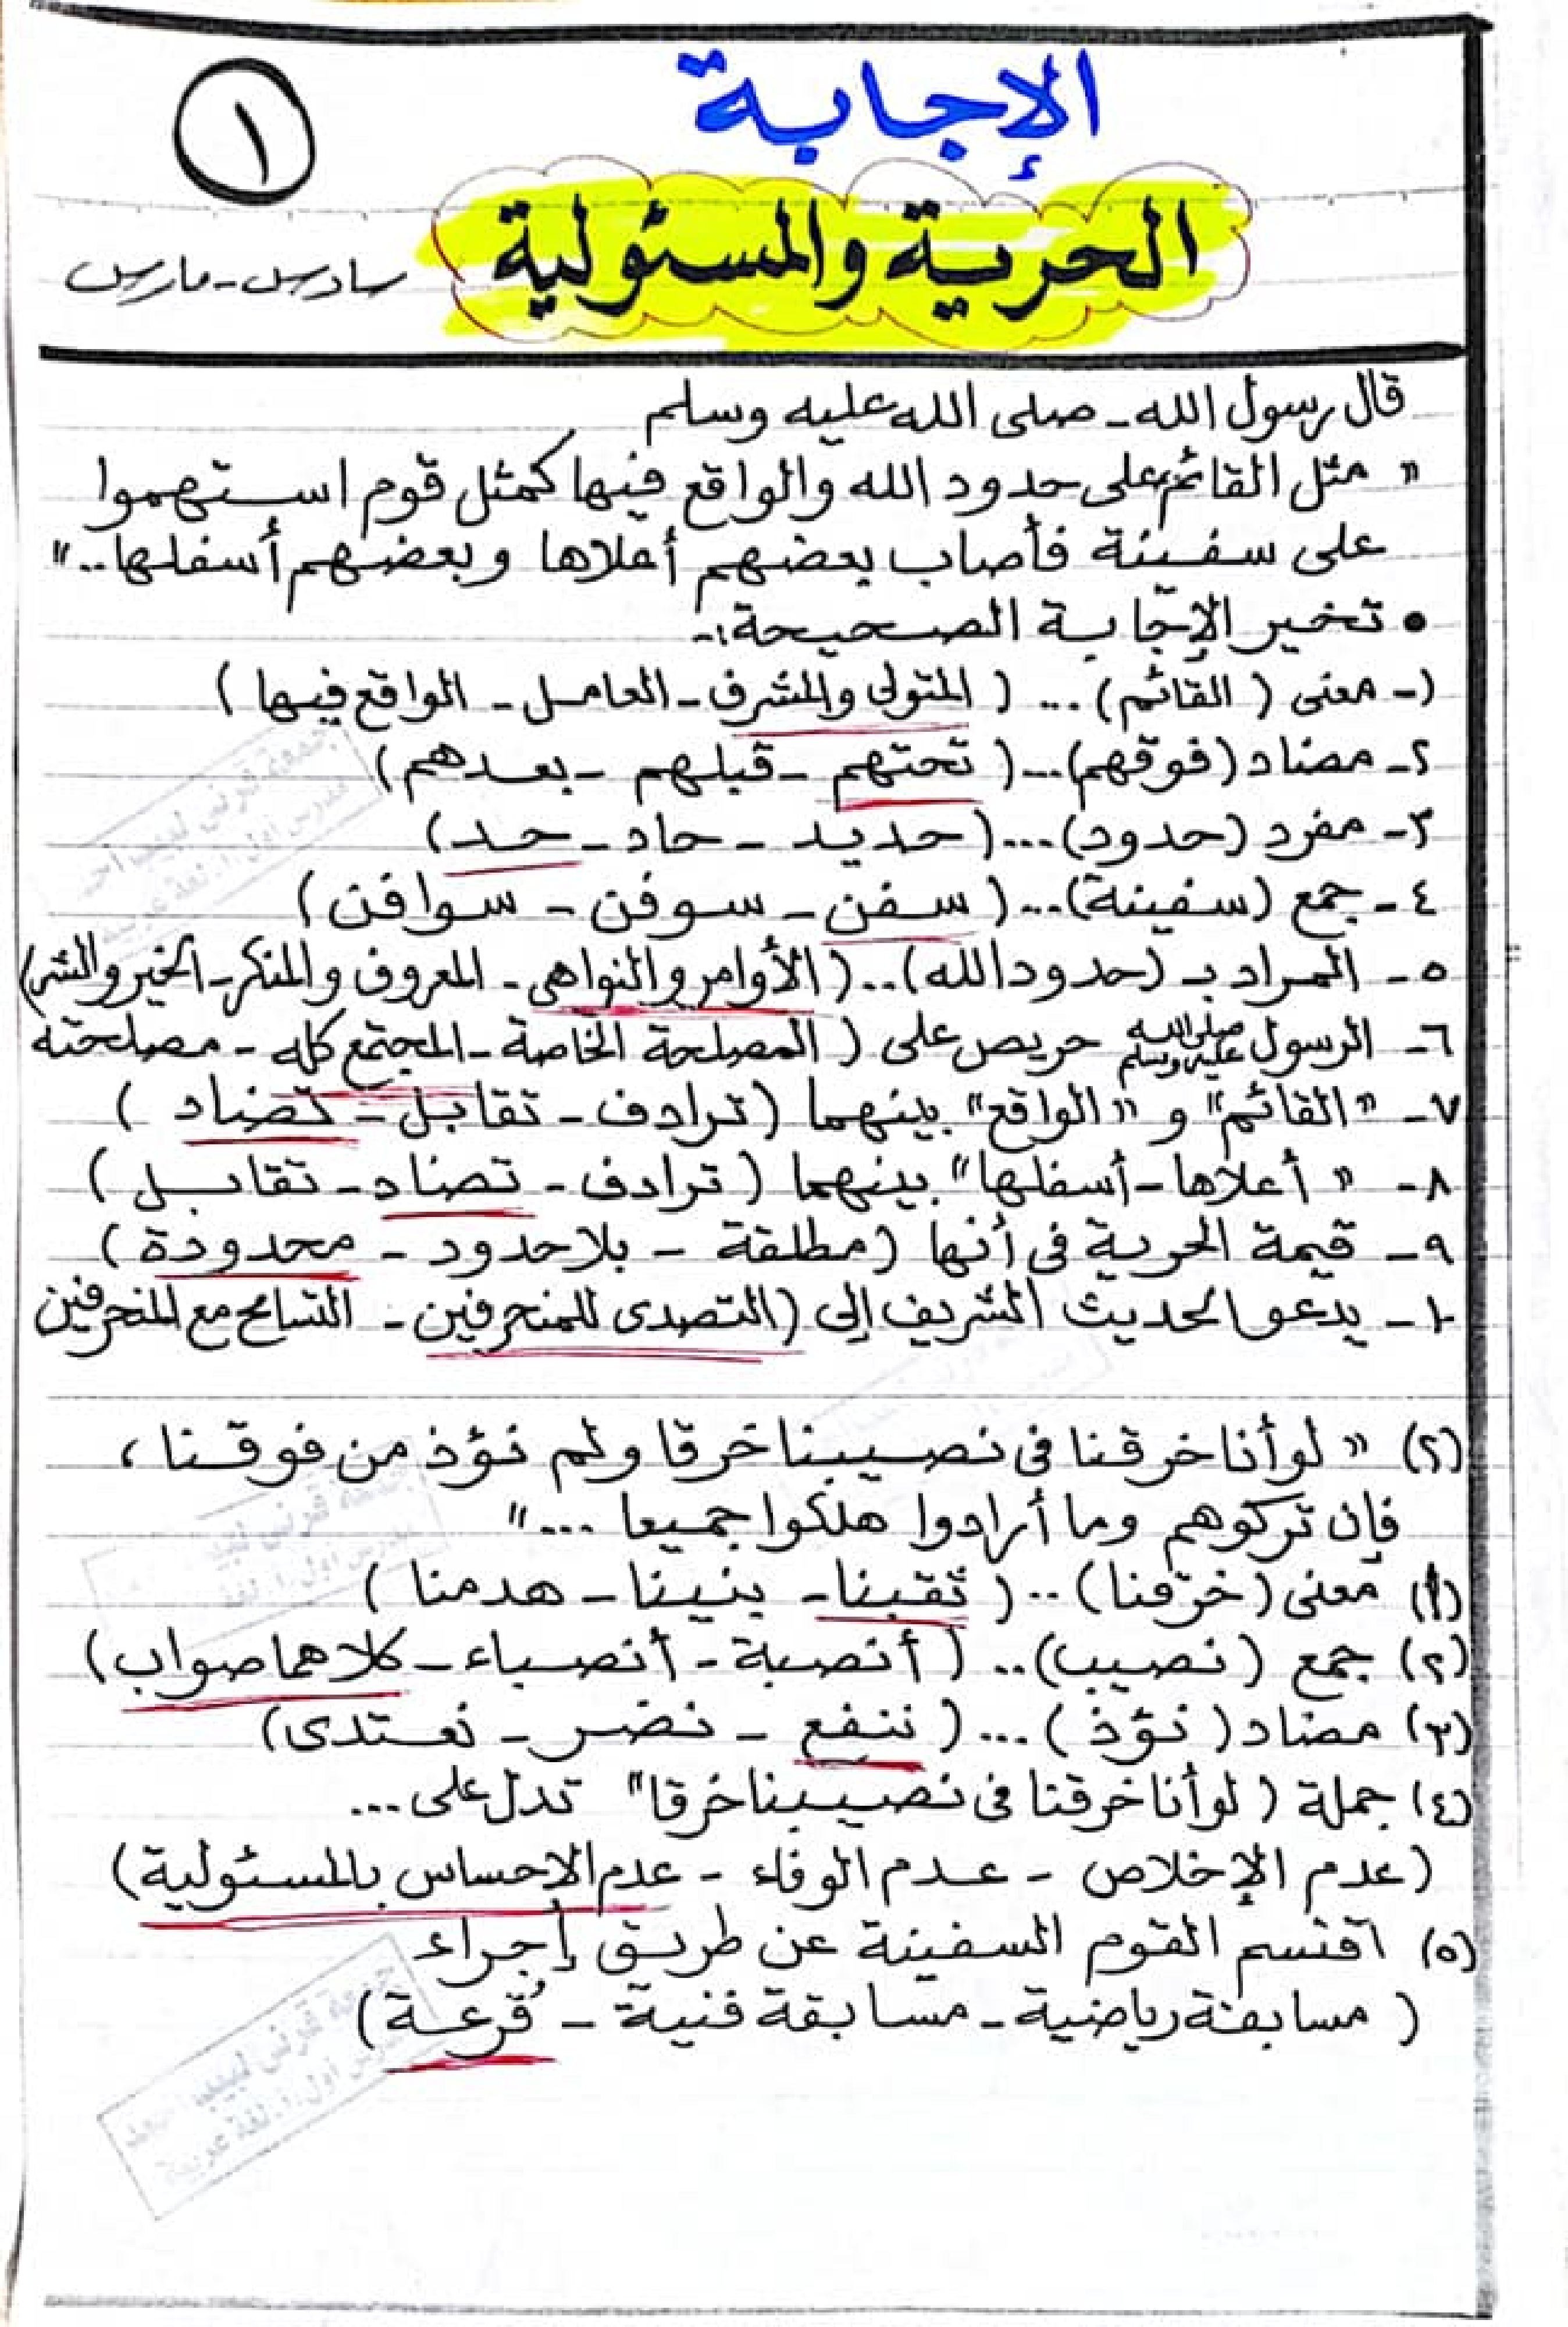 الإجابة
١
الحرية والمسئولية
سادس - مارس
قال رسول الله - صلى الله عليه وسلم
" مثل القائم على حدود الله والواقع فيها كمثل قوم استهموا
على سفينة فأصاب بعضهم أعلاها وبعضهم أسفلها.."
• تخير الإجابة الصحيحة:-
١- معنى ( القائم ) ... ( المتولى والمشرف - العامل - الواقع فيها )
٢- مضاد (فوقهم)... ( تحتهم - قبلهم - بعدهم )
٣- مفرد (حدود)... (حديد - حاد - حد)
٤- جمع (سفينة)... ( سفن - سوفن - سوافن )
٥- المراد بـ (حدود الله).. (الأوامر والنواهى - المعروف والمنكر - الخير والشر)
٦- الرسول صلى الله عليه وسلم حريص على ( المصلحة الخاصة - المجتمع كله - مصلحته
٧- "القائم" و "الواقع" بينهما (ترادف - تقابل - تضاد )
٨- " أعلاها - أسفلها" بينهما ( ترادف - تضاد - تقابل )
٩- قيمة الحرية فى أنها (مطلقة - بلا حدود - محدودة )
١٠- يدعو الحديث الشريف إلى (التصدى للمنحرفين - التسامح مع المنحرفين
(٢) " لو أنا خرقنا فى نصيبنا خرقا ولم نؤذ من فوقنا ،
فإن تركوهم وما أرادوا هلكوا جميعا ..."
(١) معنى (خرقنا) .. ( ثقبنا - بنينا - هدمنا )
(٢) جمع (نصيب).. ( أنصبة - أنصباء - كلاهما صواب)
(٣) مضاد ( نؤذ ) ... ( ننفع - نضر - نعتدى)
(٤) جملة ( لو أنا خرقنا فى نصيبنا خرقا" تدل على ...
(عدم الإخلاص - عدم الوفاء - عدم الاحساس بالمسئولية)
(٥) اقتسم القوم السفينة عن طريق إجراء
( مسابقة رياضية - مسابقة فنية - قُرعة )